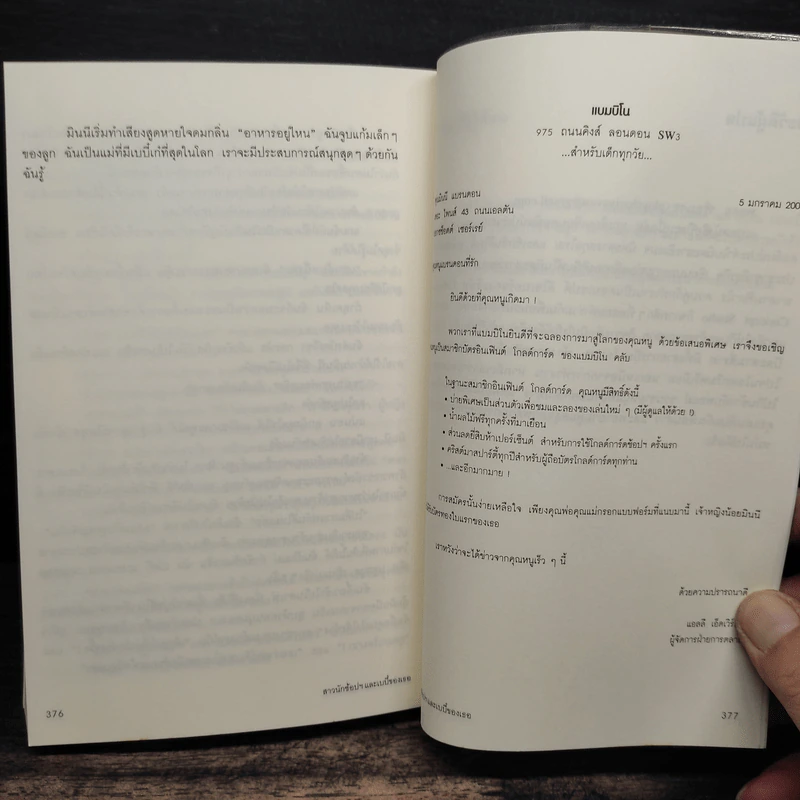 มินนีเริ่มทำเสียงสูดหายใจดมกลิ่น “อาหารอยู่ไหน” ฉันจูบแก้มเล็กๆ
ของลูก ฉันเป็นแม่ที่มีเบบี้เก๋ที่สุดในโลก เราจะมีประสบการณ์สนุกสุดๆ ด้วยกัน
ฉันรู้
สาวนักช้อปฯ และเบบี้ของเธอ
376
แบมบิโน
975 ถนนคิงส์ ลอนดอน SW3
...สำหรับเด็กทุกวัย...
5 มกราคม 200
มินนี แบรนดอน
ไพนส์ 43 ถนนเอลตัน
เซอร์เรย์
แบรนดอนที่รัก
ยินดีด้วยที่คุณหนูเกิดมา !
พวกเราที่แบมบิโนยินดีที่จะฉลองการมาสู่โลกของคุณหนู ด้วยข้อเสนอพิเศษ เราจึงขอเชิญ
เป็นสมาชิกบัตรอินเฟินต์ โกลด์การ์ด ของแบมบิโน คลับ
ในฐานะสมาชิกอินเฟินต์ โกลด์การ์ด คุณหนูมีสิทธิ์ดังนี้
• บ่ายพิเศษเป็นส่วนตัวเพื่อชมและลองของเล่นใหม่ ๆ (มีผู้ดูแลให้ด้วย !)
• น้ำผลไม้ฟรีทุกครั้งที่มาเยือน
• ส่วนลดยี่สิบห้าเปอร์เซ็นต์ สำหรับการใช้โกลด์การ์ดช้อปฯ ครั้งแรก
• คริสต์มาสปาร์ตี้ทุกปีสำหรับผู้ถือบัตรโกลด์การ์ดทุกท่าน
• ...และอีกมากมาย !
การสมัครนั้นง่ายเหลือใจ เพียงคุณพ่อคุณแม่กรอกแบบฟอร์มที่แนบมานี้ เจ้าหญิงน้อยมินนี
บัตรทองใบแรกของเธอ
เราหวังว่าจะได้ข่าวจากคุณหนูเร็ว ๆ นี้
ด้วยความปรารถนาดี
แอลลี
ผู้จัดการฝ่ายการตลาด
และเบบี้ของเธอ
377